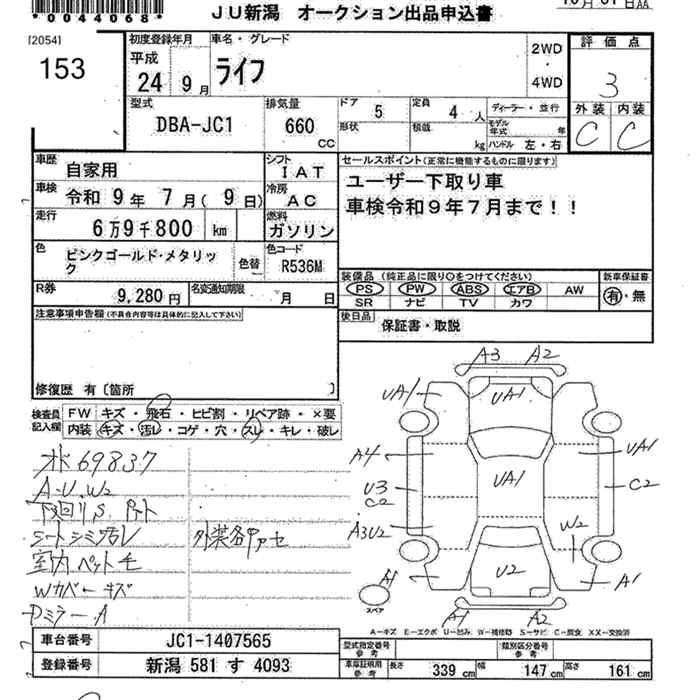 *0044068*
JU新潟 オークション出品申込書
10月 01日AA
[2054]
153
初度登録年月
平成
24 9月
車名・グレード
ライフ
2WD
・
4WD
評価点
3
外装 内装
C C
型式
DBA-JC1
排気量
660
cc
ドア
5
形状
定員
4人
積載
kg
ディーラー・並行
モデル年式 年
ハンドル 左・右
車歴
自家用
車検
令和 9年 7月( 9日)
走行
6万9千800 km
色
ピンクゴールド・メタリック
色替
シフト
IAT
冷房
AC
燃料
ガソリン
色コード
R536M
セールスポイント(正常に機能するものに限ります)
ユーザー下取り車
車検令和9年7月まで!!
R券
9,280円
名変通知期限
月 日
装備品(純正品に限り○をつけてください)
PS PW ABS エアB AW
SR ナビ TV カワ
新車保証書
有・無
後日品
保証書・取説
注意事項申告欄(不具合内容等は具体的に記入して下さい)
修復歴 有〔箇所 〕
検査員記入欄
FW キズ・飛石・ヒビ割・リペア跡・×要
内装 キズ・汚レ・コゲ・穴・スレ・キレ・破レ
オド 69837
A・U・W2
下回りS
シートシミ汚レ
室内ペット毛
Wカバーキズ
DミラーA
A3 A2
UA1 UA1
A4 UA1
U3 UA1 C2
C2
A3U2 W2
A1 U2 A1
スペア
A1 A2
A-キズ E-エクボ U-凹み W-補修跡 S-サビ C-腐食 XX-交換済
車台番号 JC1-1407565
登録番号 新潟 581 す 4093
型式指定番号
参考
類別区分番号
参考
車庫証明用
参考
長さ 339 cm 幅 147 cm 高さ 161 cm